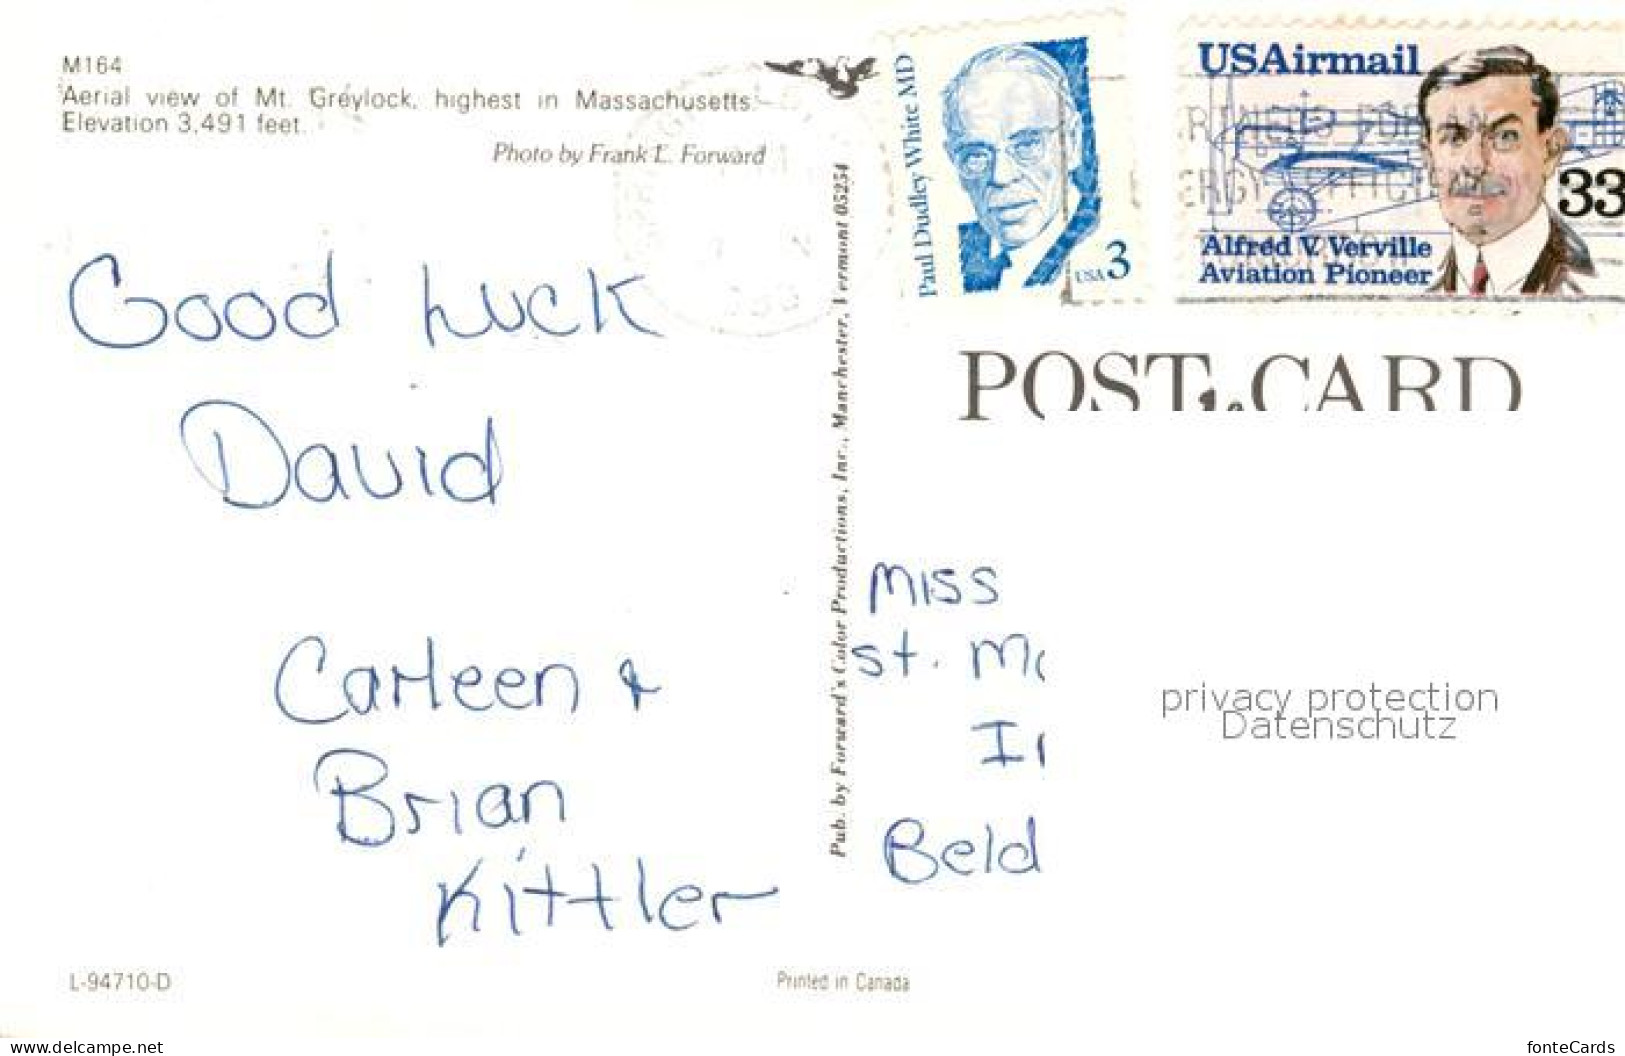 M164
Aerial view of Mt. Greylock, highest in Massachusetts.
Elevation 3,491 feet.
Photo by Frank L. Forward
Good Luck
David
Carleen &
Brian
Kittler
L-94710-D
Printed in Canada
Pub. by Forward's Color Productions, Inc., Manchester, Vermont 05254
Paul Dudley White MD
USA 3
USAirmail
33
Alfred V. Verville
Aviation Pioneer
POST CARD
Miss
St. M
I
Beld
privacy protection
Datenschutz
www.delcampe.net
fonteCards